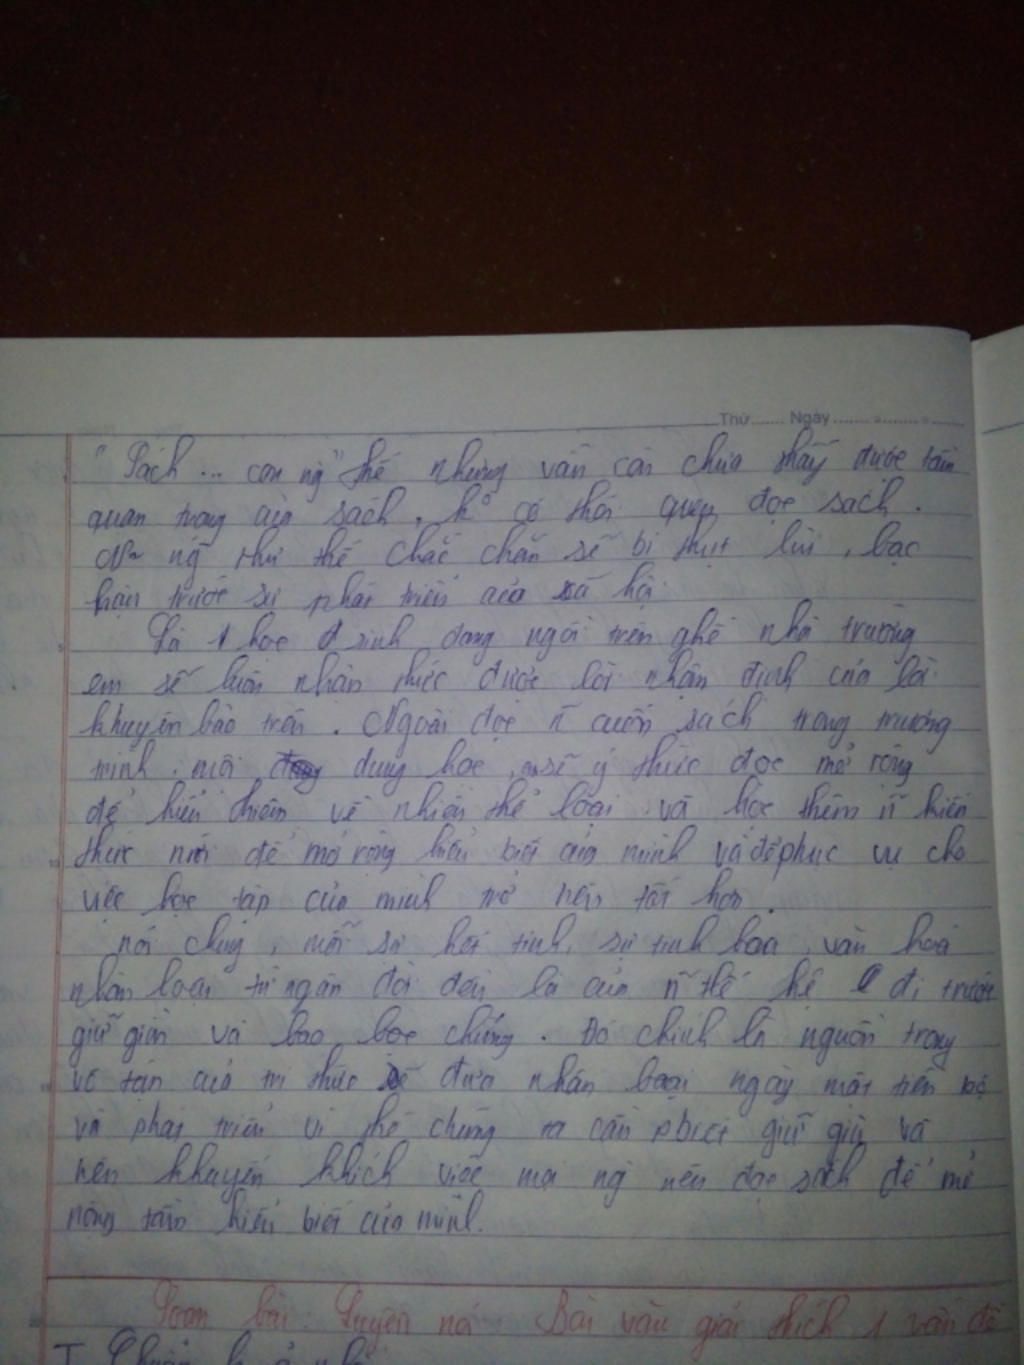 Thứ...... Ngày ........ - ........ - ......
"Sách ... con ng" thế nhưng vẫn còn chưa thấy được tầm
quan trọng của sách, k° có thói quen đọc sách.
ng như thế chắc chắn sẽ bị thụt lùi, lạc
hậu trước sự phát triển của xã hội.
Là 1 học sinh đang ngồi trên ghế nhà trường
em sẽ luôn nhận thức được lời nhận định của lời
khuyên bảo trên. Ngoài đọc ~ cuốn sách trong trương
trình, nội dung học, sẽ ý thức đọc mở rộng
để hiểu thêm về nhiều thể loại và học thêm ~ kiến
thức mới để mở rộng hiểu biết của mình và để phục vụ cho
việc học tập của mình trở nên tốt hơn.
nói chung, mỗi sự kết tinh, sự tinh hoa, văn hoá
nhân loại từ ngàn đời đều là của ~ thế hệ đi trước
giữ gìn và bao bọc chúng. Đó chính là nguồn trong
vô tận của tri thức để đưa nhân loại ngày một tiến bộ
và phát triển vì thế chúng ta cần phải giữ gìn và
nên khuyến khích việc mọi ng nên đọc sách để mở
rộng tầm hiểu biết của mình.
Soạn bài: Luyện nói: Bài văn giải thích 1 vấn đề
I